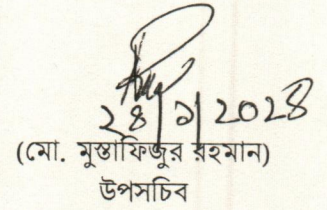 ২৪/১/২০২৪
(মো. মুস্তাফিজুর রহমান)
উপসচিব